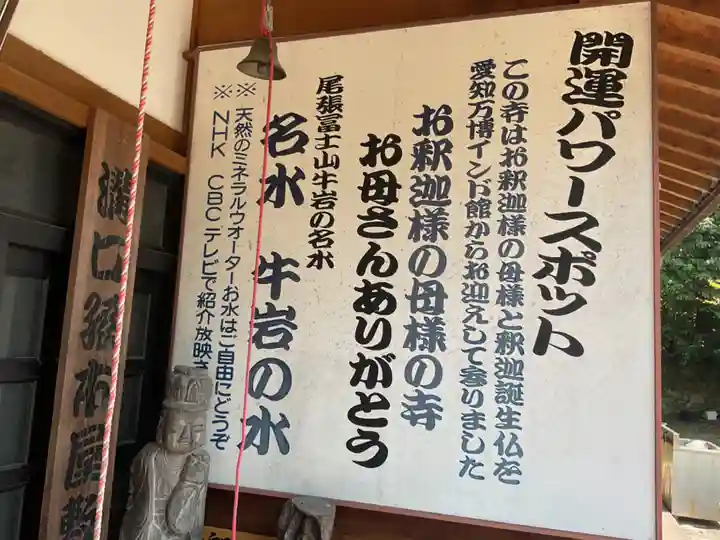 開運パワースポット
この寺はお釈迦様の母様と釈迦誕生仏を
愛知万博インド館からお迎えして寺りました
お釈迦様の母様の寺
お母さんありがとう
尾張冨士山牛岩の名水
名水 牛岩の水
※天然のミネラルウオーターお水はご自由にどうぞ
※NHK CBCテレビで紹介放映さ